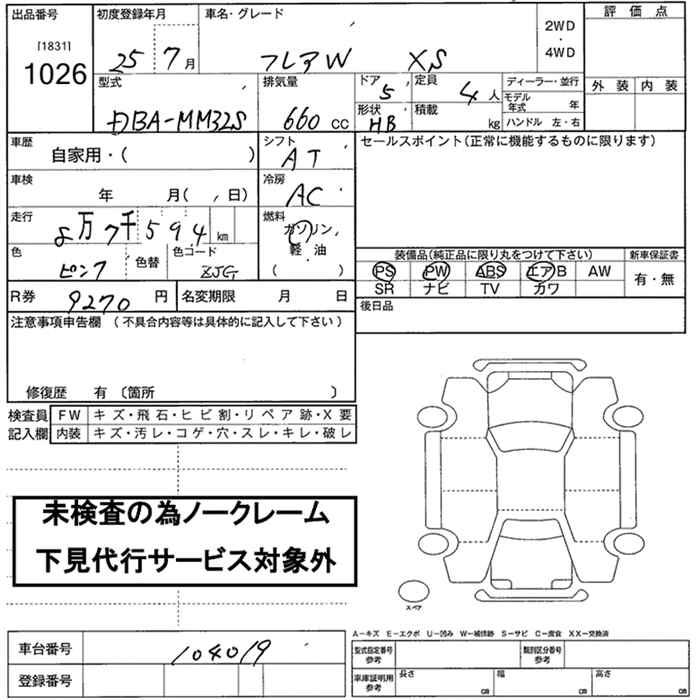 出品番号 初度登録年月 車名・グレード 2WD・4WD 評価点
[1831] 1026 25年7月 フレアW XS
外装 内装
型式 排気量 ドア 5 定員 4人 ディーラー・並行
DBA-MM32S 660cc 形状 HB 積載 kg モデル年式 年
ハンドル 左・右
車歴 自家用・( ) シフト AT セールスポイント(正常に機能するものに限ります)
車検 年 月( 、日) 冷房 AC
走行 8万7千594km 燃料 ガソリン、軽・油 ( )
色 ピンク 色替 色コード ZJG
装備品(純正品に限り丸をつけて下さい) 新車保証書
PS PW ABS エアB AW 有・無
SR ナビ TV カワ
R券 9270円 名変期限 月 日 後日品
注意事項申告欄(不具合内容等は具体的に記入して下さい)
修復歴 有〔箇所 〕
検査員 FW キズ・飛石・ヒビ割・リペア跡・X要
記入欄 内装 キズ・汚レ・コゲ・穴・スレ・キレ・破レ
未検査の為ノークレーム
下見代行サービス対象外
スペア
A-キズ E-エクボ U-凹み W-補修跡 S-サビ C-腐食 XX-交換済
車台番号 104019 型式指定番号 参考 類別区分番号 参考
登録番号 車庫証明用 参考 長さ cm 幅 cm 高さ cm